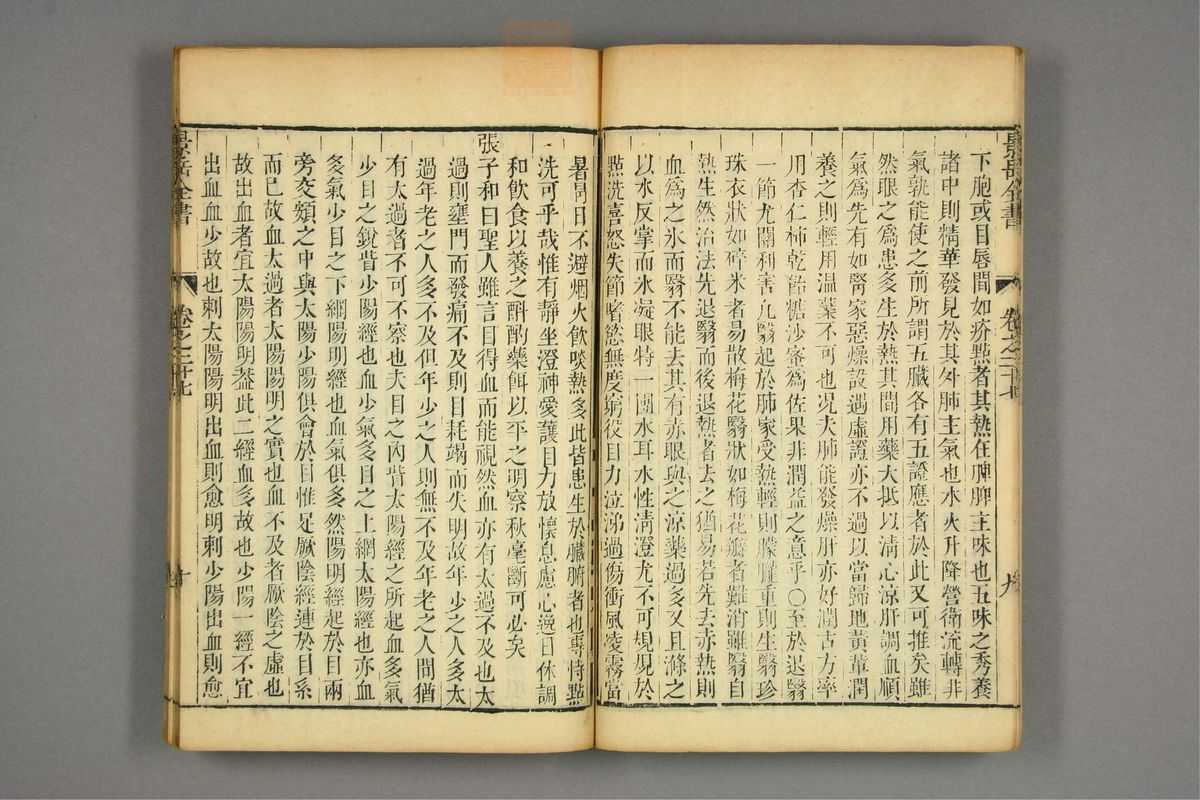 景岳全書
卷之二十七
九
下胞或目唇間如疥點者其熱在脾脾主味也五味之秀養
諸中則精華發見於其外肺主氣也水火升降營衛流轉非
氣孰能使之前所謂五臟各有五證應者於此又可推矣雖
然眼之爲患多生於熱其間用藥大抵以清心涼肝調血順
氣爲先有如腎家惡燥設遇虛證亦不過以當歸地黃輩潤
養之則輕用溫藥不可也况夫肺能發燥肝亦好潤古方率
用杏仁柿乾飴糖沙蜜爲佐果非潤益之意乎〇至於退翳
一節尤關利害凡翳起於肺家受熱輕則朦朧重則生翳珍
珠衣狀如碎米者易散梅花翳狀如梅花瓣者難消雖翳自
熱生然治法先退翳而後退熱者去之猶易若先去赤熱則
血爲之氷而翳不能去其有赤眼與之涼藥過多又且滌之
以水反掌而水凝眼特一團水耳水性清澄尤不可規規於
點洗喜怒失節嗜慾無度窮役目力泣涕過傷衝風凌霧當
暑冐日不避烟火飲啖熱多此皆患生於臟腑者也專恃點
洗可乎哉惟有靜坐澄神愛護目力放懷息慮心逸目休調
和飲食以養之斟酌藥餌以平之明察秋毫斷可必矣
張子和曰聖人雖言目得血而能視然血亦有太過不及也太
過則壅門而發痛不及則目耗竭而失明故年少之人多太
過年老之人多不及但年少之人則無不及年老之人間猶
有太過者不可不察也夫目之內眥太陽經之所起血多氣
少目之銳眥少陽經也血少氣多目之上網太陽經也亦血
多氣少目之下網陽明經也血氣俱多然陽明經起於目兩
旁交頞之中與太陽少陽俱會於目惟足厥陰經連於目系
而已故血太過者太陽陽明之實也血不及者厥陰之虛也
故出血者宜太陽陽明葢此二經血多故也少陽一經不宜
出血血少故也刺太陽陽明出血則愈明刺少陽出血則愈
景岳全書
卷之二十七
十